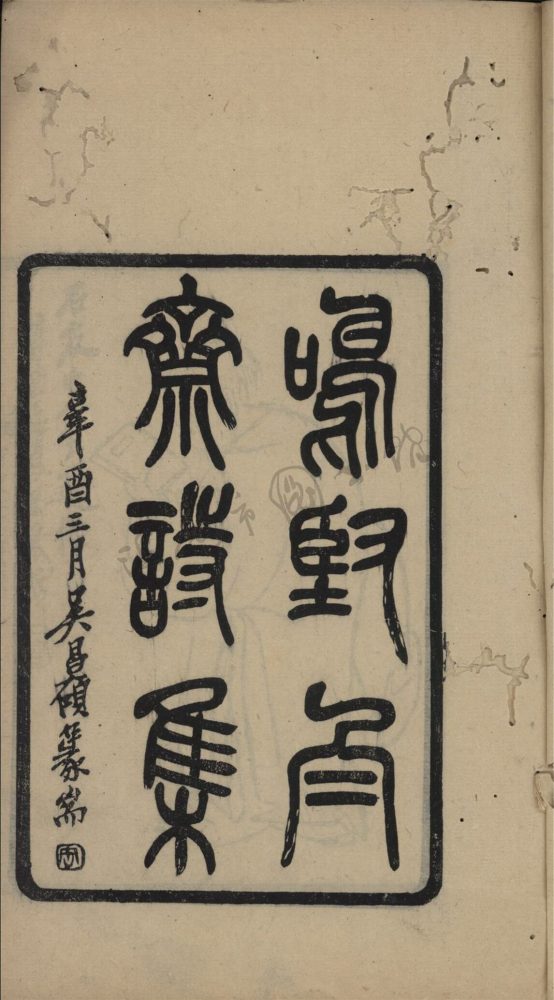 鳴堅白
齋詩集
辛酉三月吳昌碩篆耑